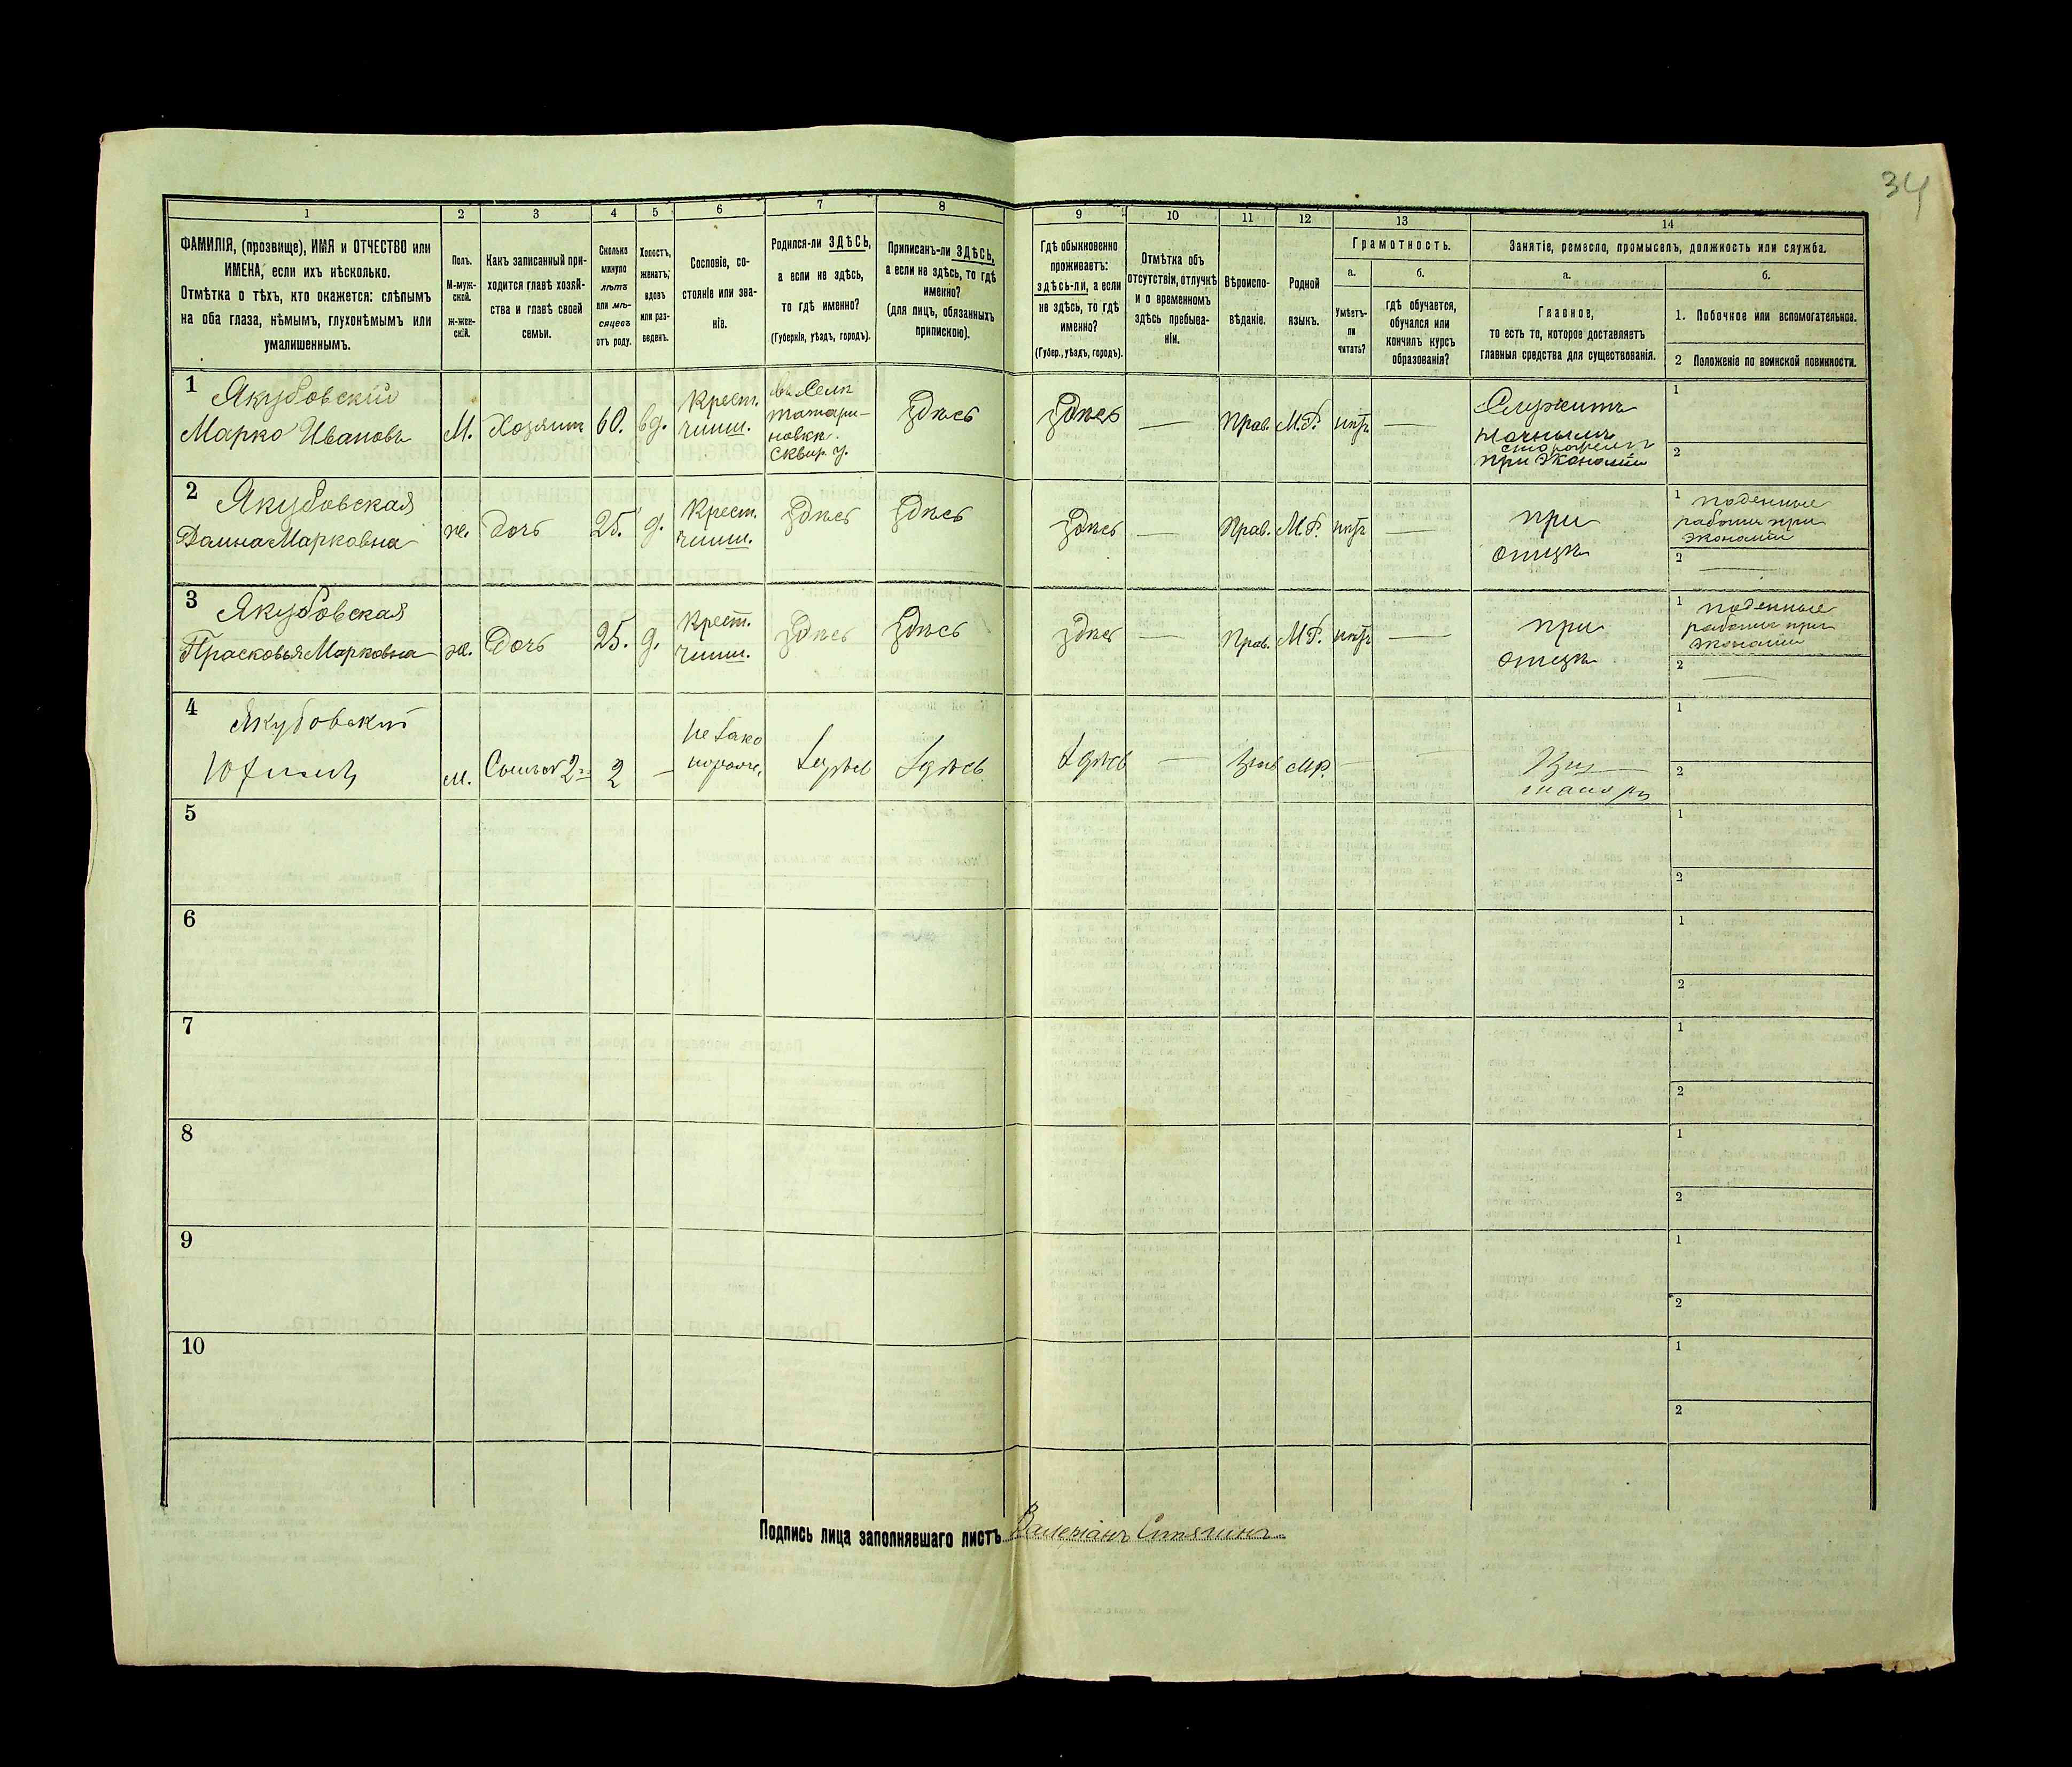 34
1
2
3
4
5
6
7
8
9
10
11
12
13
14
ФАМИЛІЯ, (прозвище), ИМЯ и ОТЧЕСТВО или
ИМЕНА, если ихъ нѣсколько.
Отмѣтка о тѣхъ, кто окажется: слѣпымъ
на оба глаза, нѣмымъ, глухонѣмымъ или
умалишеннымъ.
Полъ.
М-муж-
ской.
ж-жен-
скій.
Какъ записанный при-
ходится главѣ хозяй-
ства и главѣ своей
семьи.
Сколько
минуло
лѣтъ
или мѣ-
сяцевъ
отъ роду.
Холостъ,
женатъ,
вдовъ
или раз-
веденъ.
Сословіе, со-
стояніе или зва-
ніе.
Родился-ли ЗДѢСЬ,
а если не здѣсь,
то гдѣ именно?
(Губернія, уѣздъ, городъ).
Приписанъ-ли ЗДѢСЬ,
а если не здѣсь, то гдѣ
именно?
(для лицъ, обязанныхъ
припискою).
Гдѣ обыкновенно
проживаетъ:
здѣсь-ли, а если
не здѣсь, то гдѣ
именно?
(Губер., уѣздъ, городъ).
Отмѣтка объ
отсутствіи, отлучкѣ
и о временномъ
здѣсь пребыва-
ніи.
Вѣроиспо-
вѣданіе.
Родной
языкъ.
Грамотность.
а.
Умѣетъ-
ли
читать?
б.
гдѣ обучается,
обучался или
кончилъ курсъ
образованія?
Занятіе, ремесло, промыселъ, должность или служба.
а.
Главное,
то есть то, которое доставляетъ
главныя средства для существованія.
б.
1. Побочное или вспомогательное.
2 Положеніе по воинской повинности.
1 Якубовскій
Марко Ивановъ
М.
Хозяинъ
60.
вд.
Крест.
чинш.
въ Селѣ
татари-
новкѣ.
Сквир. у.
Здѣсь
Здѣсь
—
Прав.
М.Р.
нѣтъ
—
Служитъ
ночнымъ
сторожемъ
при Экономіи
1
2
2 Якубовская
Домна Марковна
ж.
Дочь
25.
д.
Крест.
чинш.
Здѣсь
Здѣсь
Здѣсь
—
Прав.
М.Р.
нѣтъ
—
при
отцѣ
1 поденные
работы при
экономіи
2 —
3 Якубовская
Прасковья Марковна
ж.
Дочь
25.
д.
Крест.
чинш.
Здѣсь
Здѣсь
Здѣсь
—
Прав.
М.Р.
нѣтъ
—
при
отцѣ
1 поденные
работы при
экономіи
2 —
4 Якубовскій
м.
2
—
Незако
Здѣсь
Здѣсь
Здѣсь
—
МР.
—
—
При
матери
1
2
5
1
2
6
1
2
7
1
2
8
1
2
9
1
2
10
1
2
Подпись лица заполнявшаго листъ Валеріанъ